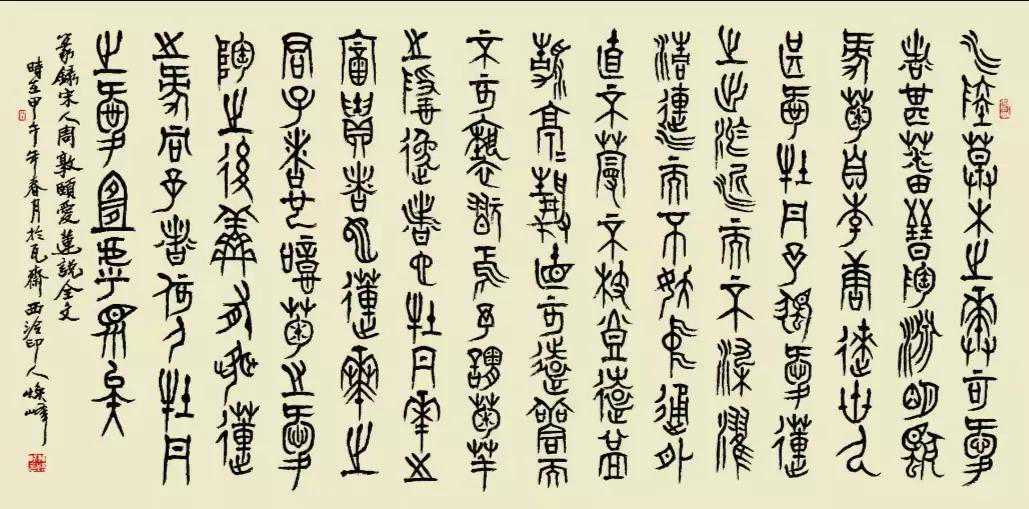 水陸草木之華可愛
者甚蕃晉陶淵明獨
愛菊自李唐徠世人
甚愛牡丹予獨愛蓮
之出淤泥而不染濯
清漣而不妖中通外
直不蔓不枝香遠益
清亭=靜植可遠觀而
不可褻翫焉予謂菊華
之隱逸者也牡丹華之
富貴者也蓮華之
君子者也噫菊之愛
陶之後鮮有聞蓮
之愛同予者何人牡丹
之愛宜乎眾矣
篆錄宋人周敦頤愛蓮說全文
時在甲午年春月於瓦齋西泠印人煥峰